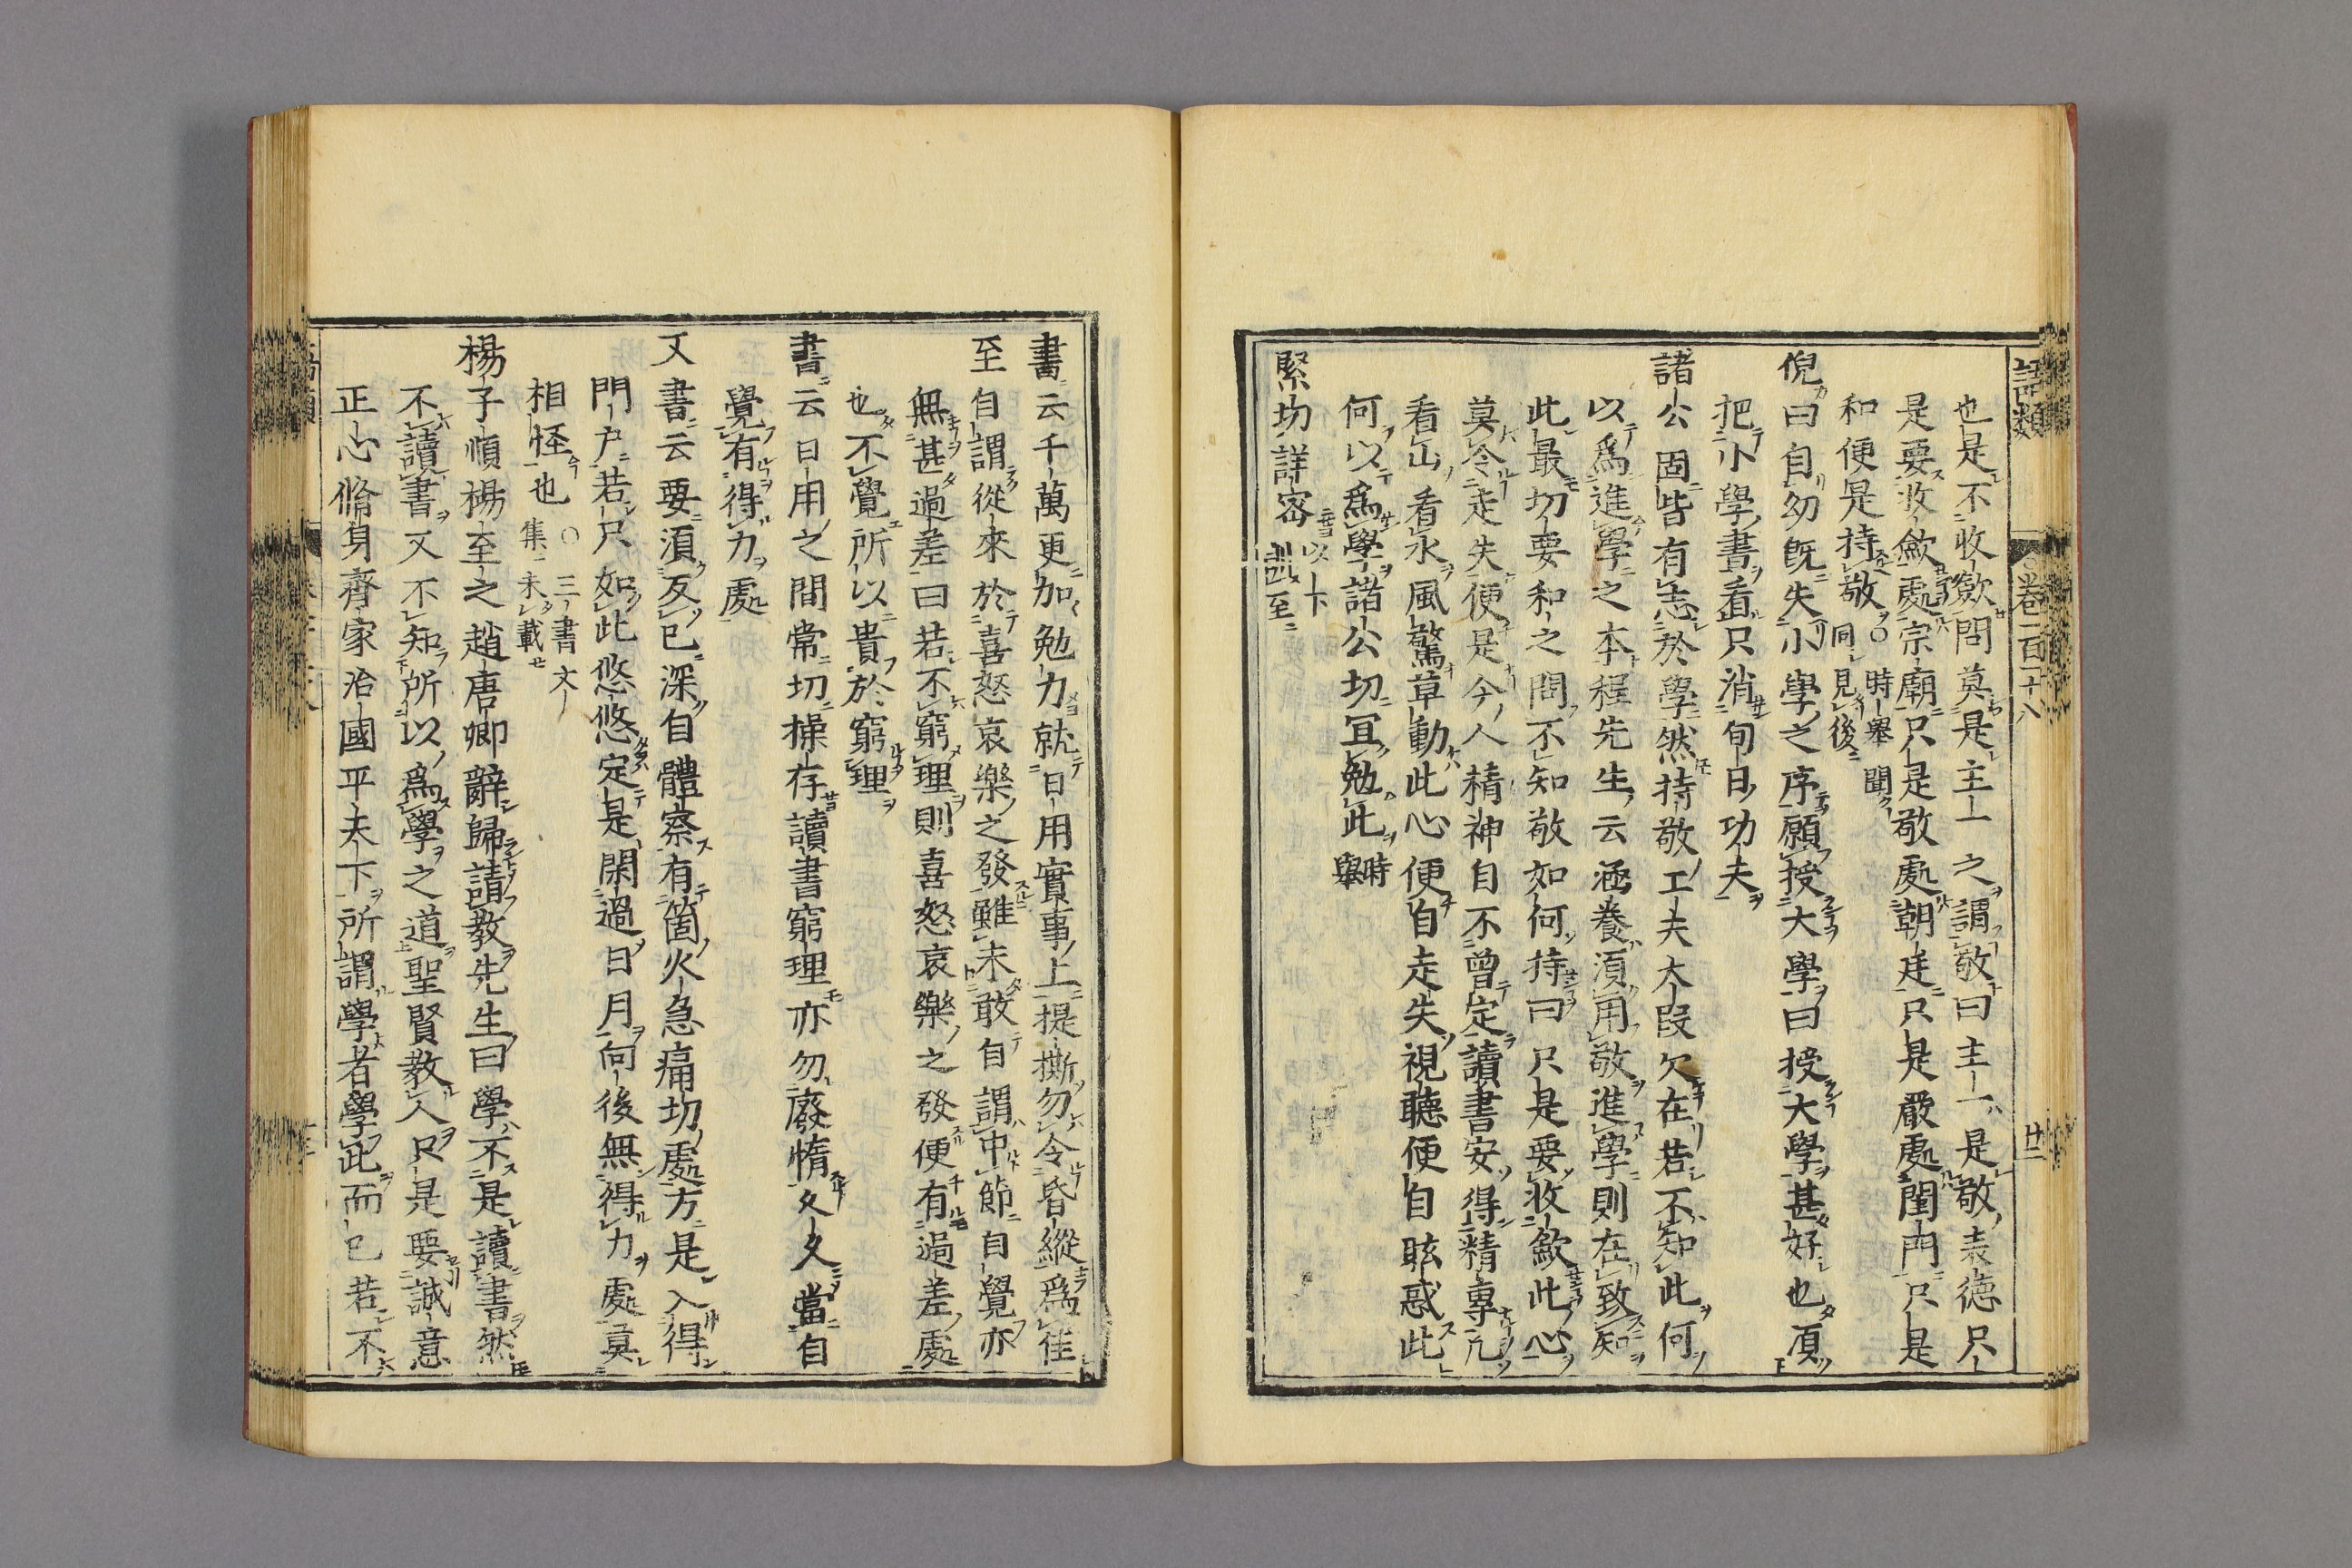 語類 卷一百一十八 廿二
也是不收斂問莫是主一之謂敬曰主一是敬表德只
是要收斂處宗廟只是敬處朝廷只是嚴處閨門只是
和便是持敬○時舉聞
同見後
倪曰自幼既失小學之序願授大學曰授大學甚好也須
把小學書看只消旬日功夫
諸公固皆有志於學然持敬工夫大段欠在若不知此何
以爲進學之本程先生云涵養須用敬進學則在致知
此最切要和之問不知敬如何持曰只是要收斂此心
莫令走失便是今人精神自不曾定讀書安得精專凡
看山看水風驚草動此心便自走失視聽便自眩惑此
何以爲學諸公切冝勉此時
舉
緊切詳密以下
訓至
書云千萬更加勉力就日用實事上提撕勿令昏縱爲佳
至自謂從來於喜怒哀樂之發雖未敢自謂中節自覺亦
無甚過差曰若不窮理則喜怒哀樂之發便有過差處
也不覺所以貴於窮理
書云日用之間常切操存讀書窮理亦勿廢惰久久當自
覺有得力處
又書云要須反己深自體察有箇火急痛切處方是入得
門戶若只如此悠悠定是閑過日月向後無得力處莫
相怪也○三書文
集未載
楊子順楊至之趙唐卿辭歸請教先生曰學不是讀書然
不讀書又不知所以爲學之道聖賢教人只是要誠意
正心脩身齊家治國平天下所謂學者學此而已若不